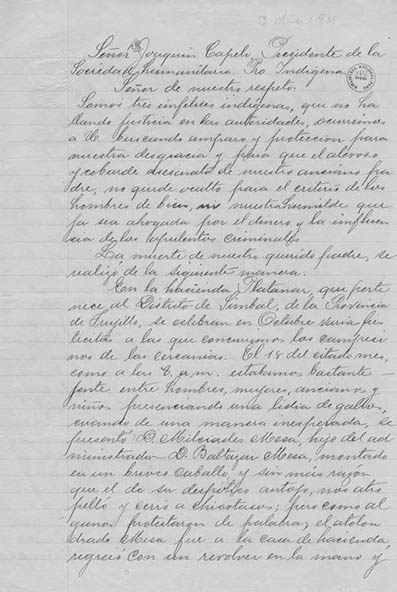 3 dic 1911
Señor Joaquin Capelo, Presidente de la
Sociedad humanitaria Pro Indígena
Señor de nuestro respeto:
Somos tres infelices indígenas, que no ha
llando justicia en las autoridades, ocurrimos
a U. buscando amparo y protección para
nuestra desgracia y para que el alevoso
y cobarde asesinato de nuestro anciano pa
dre, no quede oculto para el criterio de los
hombres de bien, nuestra humilde que
ja sea ahogada por el dinero y la influen
cia de los opulentos criminales.
La muerte de nuestro querido padre, se
realizó de la siguiente manera:
En la hacienda, que perte
nece, al Distrito de Simbal, de la Provincia
de Trujillo, se celebran en Octubre varias fies
tecitas a las que concurrimos los campesi
nos de las cercanías. El 18 del citado mes,
como a las a.m. estabamos bastante
gente entre hombres, mujeres, ancianos y
niños presenciando una lidia de gallos,
cuando de una manera inesperada, se
presentó D. Milciades Mesa, hijo del ad
ministrador D. Baltazar Mesa, montado
en un brioso caballo, y sin más razón
que el de su despótico antojo, nos atro
pelló y cerró a chicotazos; pero como al
gunos protestaron de palabra, el atolon
drado Mesa fue a la casa de hacienda,
regresó con un revolver en la mano y